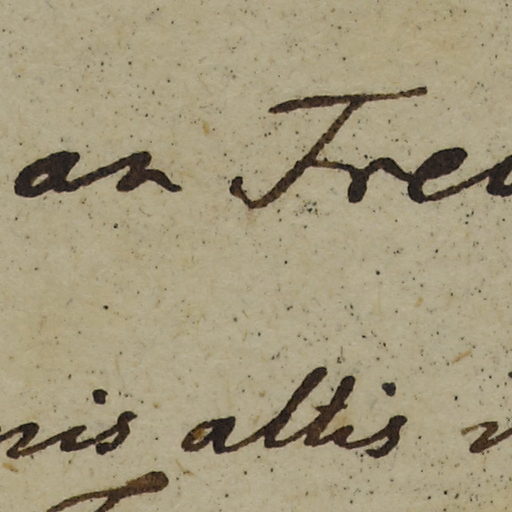 an Fre
nis altis